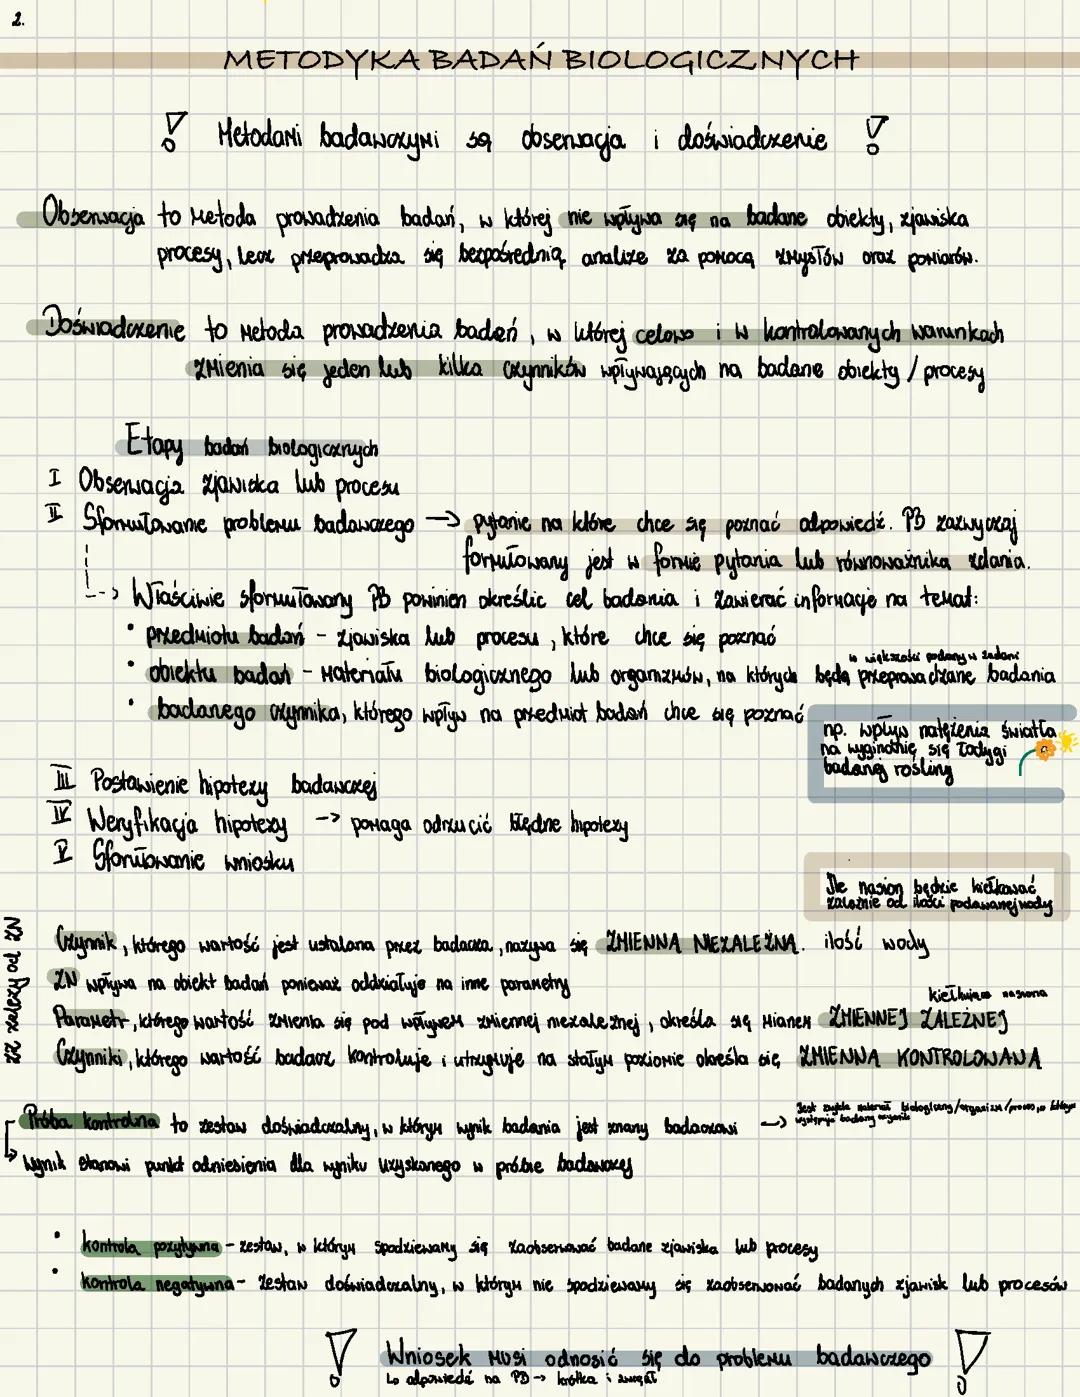 2.
METODYKA BADAŃ BIOLOGICZNYCH
! Metodami badawczymi są obserwacja i doświadczenie !
Obserwacja to metoda prowadzenia badań, w której nie wpływa się na badane obiekty, zjawiska
procesy, lecz przeprowadza się bezpośrednią analizę za pomocą zmysłów oraz pomiarów.
Doświadczenie to metoda prowadzenia badań, w której celowo i w kontrolowanych warunkach
zmienia się jeden lub kilka czynników wpływających na badane obiekty / procesy
Etapy badań biologicznych
I Obserwacja zjawiska lub procesu
II Sformułowanie problemu badawczego -> pytanie na które chce się poznać odpowiedź. PB zazwyczaj
formułowany jest w formie pytania lub równoważnika zdania.
--> Właściwie sformułowany PB powinien określić cel badania i zawierać informacje na temat:
• przedmiotu badań - zjawiska lub procesu, które chce się poznać
w większości podany w zadaniu
• obiektu badań - materiału biologicznego lub organizmów, na których będą przeprowadzane badania
• badanego czynnika, którego wpływ na przedmiot badań chce się poznać
np. wpływ natężenia światła
na wyginanie się łodygi
badanej rośliny
III Postawienie hipotezy badawczej
IV Weryfikacja hipotezy -> pomaga odrzucić błędne hipotezy
V Sformułowanie wniosku
Ile nasion będzie kiełkować
zależnie od ilości podawanej wody
ZZ zależy od ZN
Czynnik, którego wartość jest ustalana przez badacza, nazywa się ZMIENNĄ NIEZALEŻNĄ. ilość wody
ZN wpływa na obiekt badań ponieważ oddziałuje na inne parametry
nasiona
Parametr, którego wartość zmienia się pod wpływem zmiennej niezależnej, określa się mianem ZMIENNEJ ZALEŻNEJ
Czynniki, którego wartość badacz kontroluje i utrzymuje na stałym poziomie określa się ZMIENNĄ KONTROLOWANĄ
Próba kontrolna to zestaw doświadczalny, w którym wynik badania jest znany badaczowi -> Jest zwykle materiał biologiczny/organizm/proces, w którym
występuje badany czynnik
-> wynik stanowi punkt odniesienia dla wyniku uzyskanego w próbie badawczej
• kontrola pozytywna - zestaw, w którym spodziewamy się zaobserwować badane zjawiska lub procesy
• kontrola negatywna - zestaw doświadczalny, w którym nie spodziewamy się zaobserwować badanych zjawisk lub procesów
! Wniosek musi odnosić się do problemu badawczego !
↳ odpowiedź na PB -> krótka i